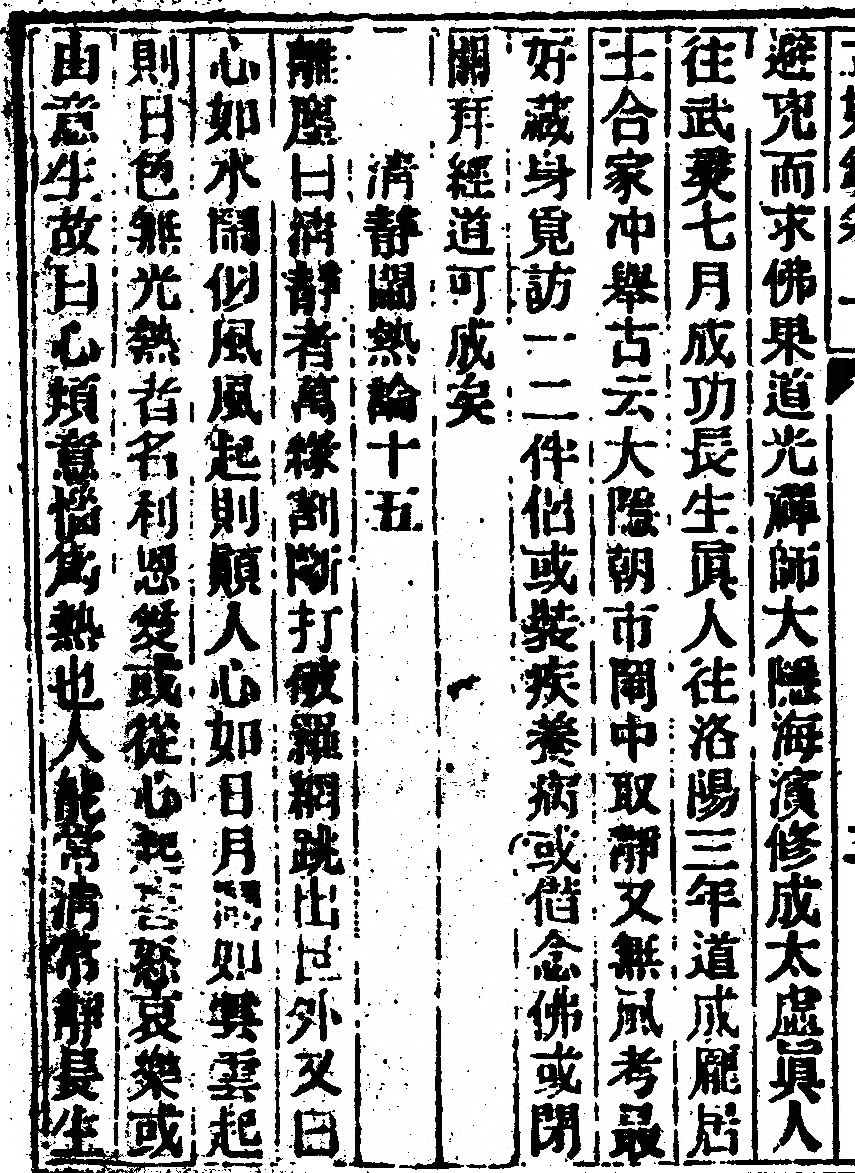 避兇而求佛果道光禪師大隱海濱修成太虛真人
往武夷七月成功長生眞人往洛陽三年道成龐居
士合家冲舉古云大隱朝市閙中取靜又無風考最
好藏身覓訪一二件侣或裝疾養病或偕念佛或閉
關拜經道可成矣
清靜閙熱論十五
離塵曰清靜者萬緣割斷打破羅網跳出世外又曰
心如水閙似風風起則顛人心如日月閙如雲雲起
則日色無光熱者名利恩愛或從心起喜怒哀樂或
由意生故曰心煩意惱爲熱也人能常清常靜長生